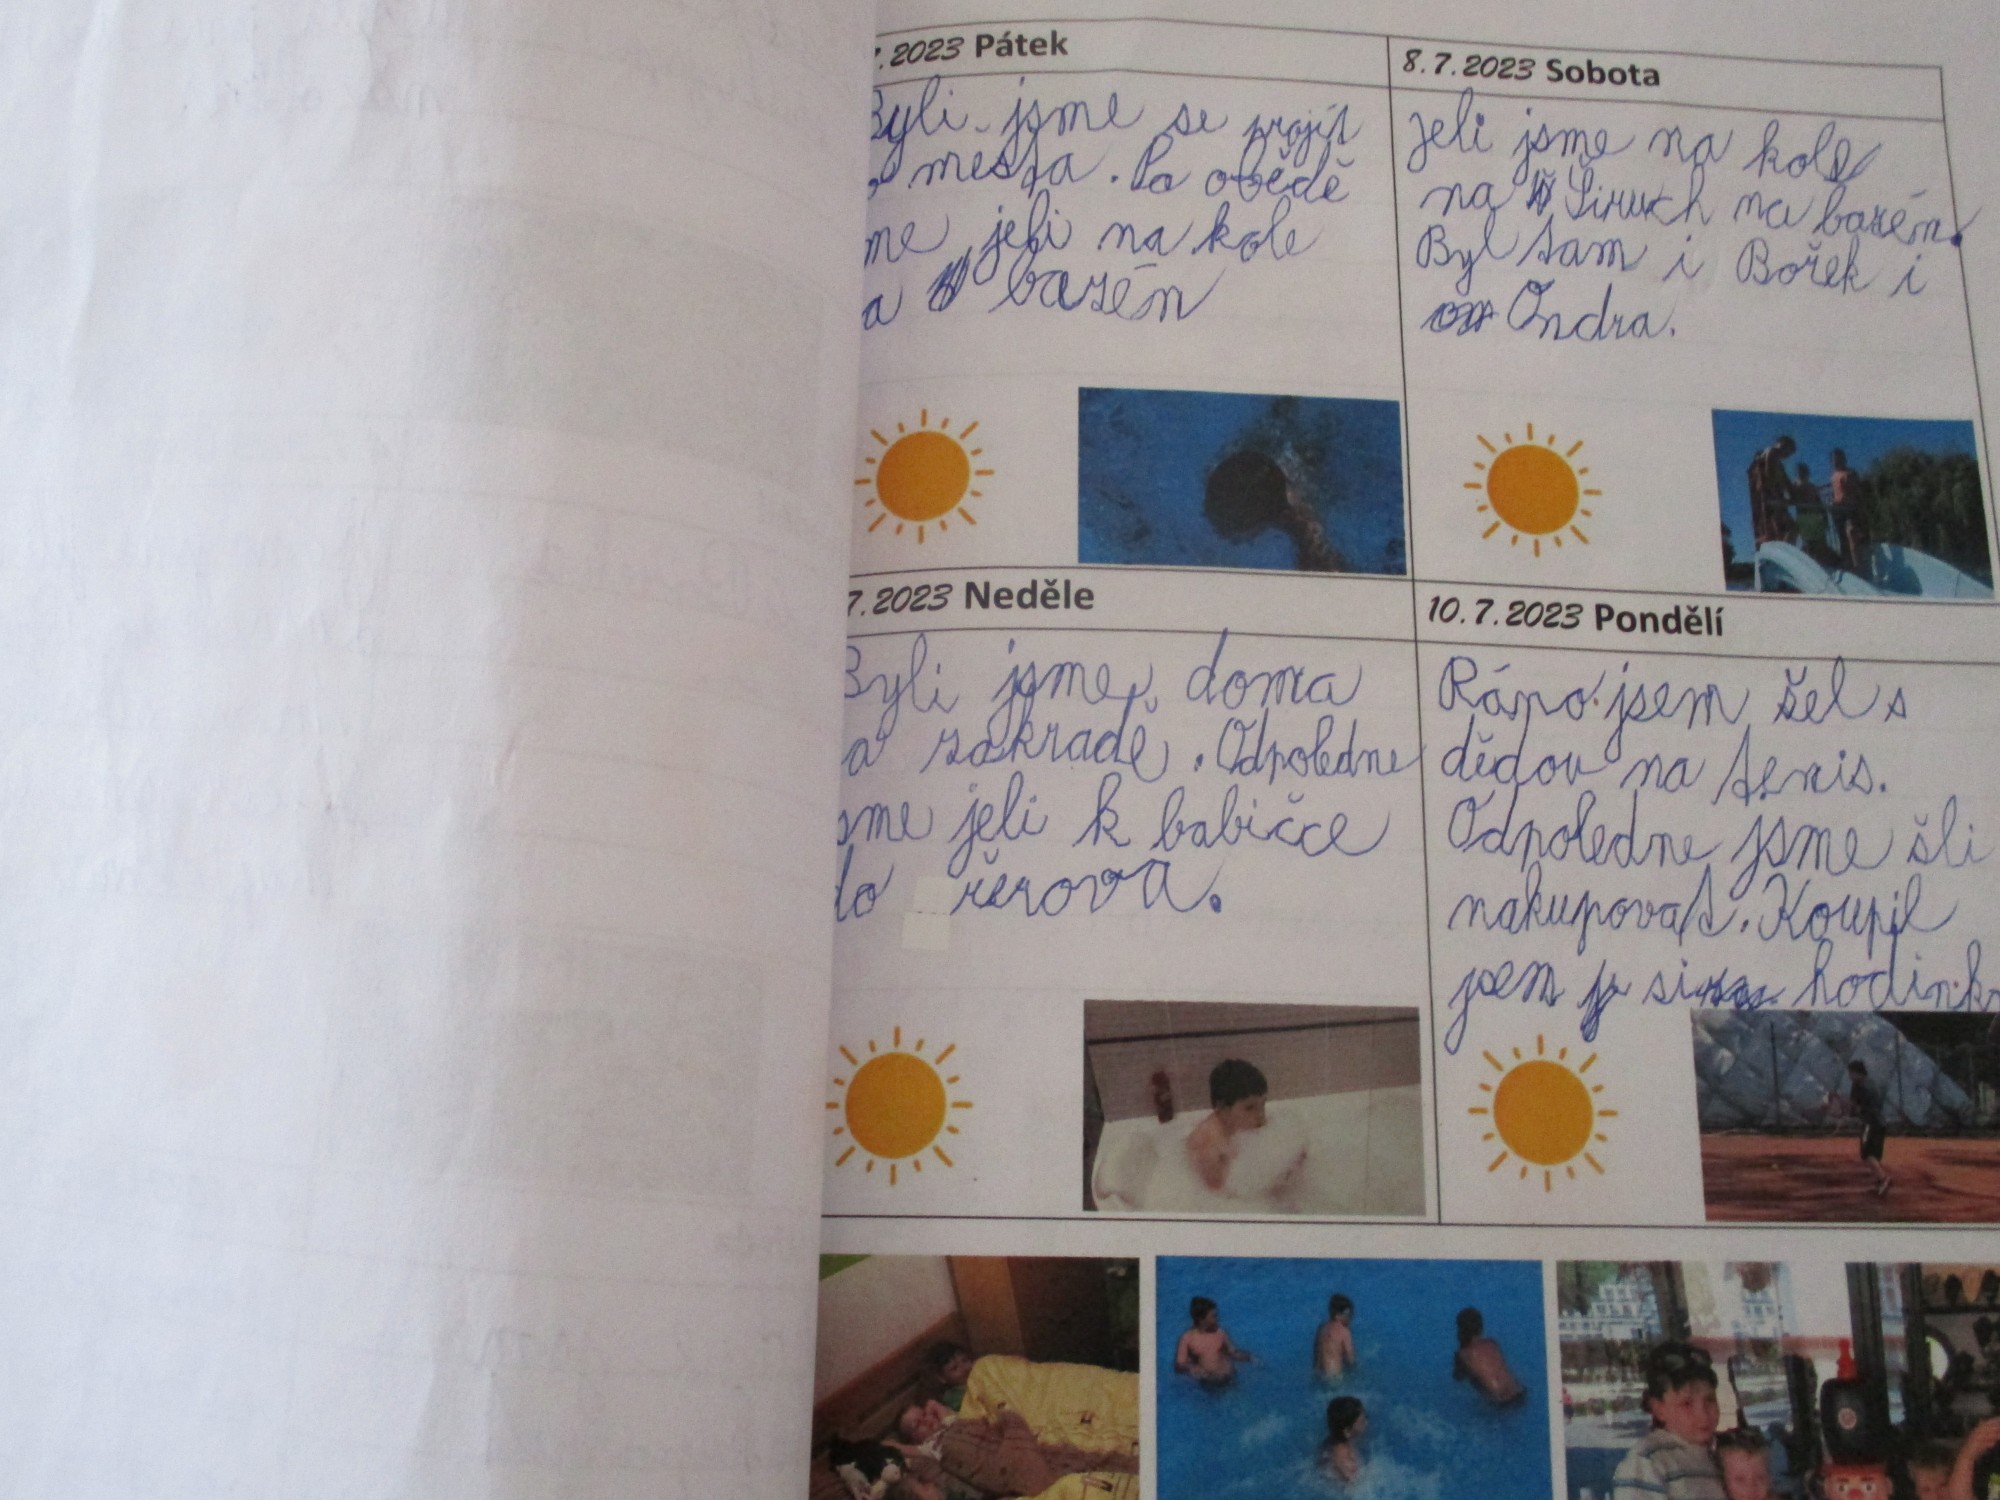 .2023 Pátek
Byli jsme se projít
o města. Po obědě
me jeli na kole
a bazén
8.7.2023 Sobota
Jeli jsme na kole
na Širuch na bazén.
Byl tam i Bořek i
Ondra.
7.2023 Neděle
Byli jsme doma
a zakradě. Odpoledne
sme jeli k babičce
do řerova.
10.7.2023 Pondělí
Ráno jsem šel s
dědou na tenis.
Odpoledne jsme šli
nakupovat. Koupil
jsem si hodink